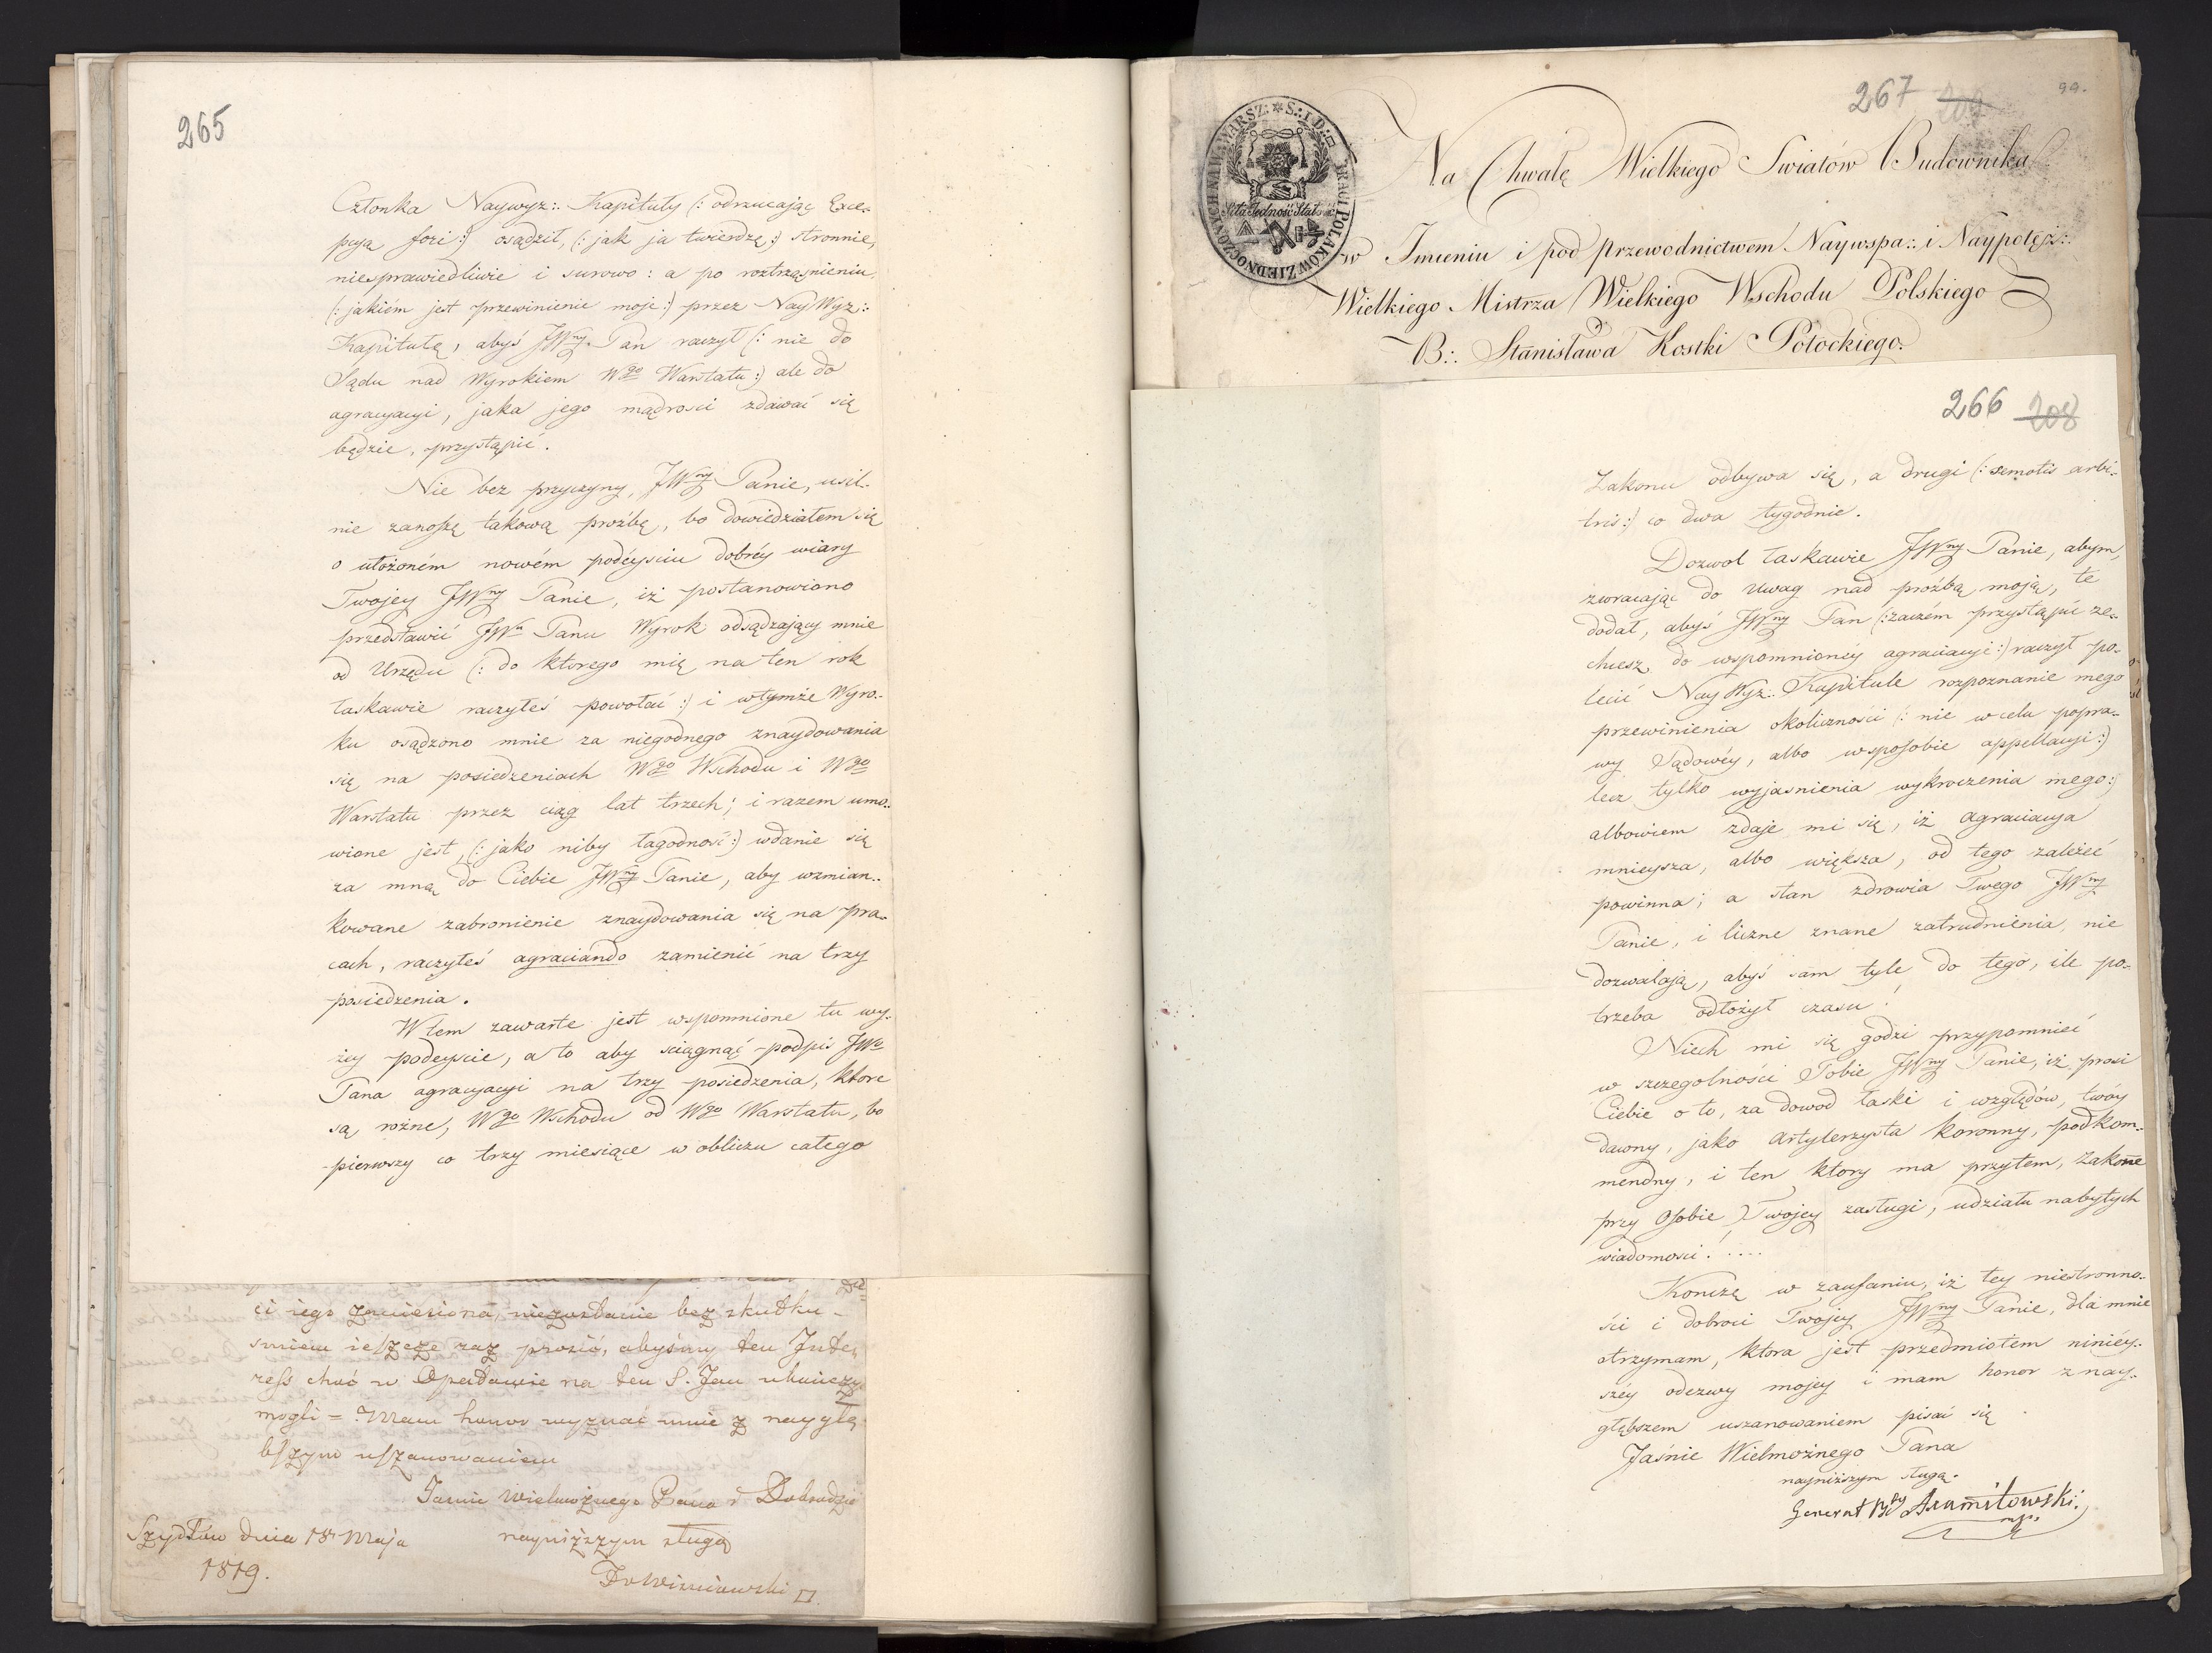 265
Członka Naywyz:. Kapituły (: odrzucając Exce-
pcyą fori :) osądził, (: jak ja twierdzę :) stronnie,
niesprawiedliwie i surowo: a po roztrząśnieniu
(: jakiém jest przewinienie moje :) przez Nay Wyz:.
Kapitułę, abyś JWny Pan raczył (: nie do
Sądu nad Wyrokiem Wgo Warstatu :) ale do
agracyacyi, jaka jego mądrosci zdawać się
będzie, przystąpić.
Nie bez przyczyny, JWny Panie, usil-
nie zanoszę takową proźbę, bo dowiedziałem się
o ułożoném nowém podéysciu dobréy wiary
Twojey JWny Panie, iż postanowiono
przedstawić JWu Panu Wyrok odsądzający mnie
od Urzędu (: do ktorego mię na ten rok
łaskawie raczyłeś powołać :) i wtymże Wyro-
ku osądzono mnie za niegodnego znaydowania
się na posiedzeniach Wgo Wschodu i Wgo
Warstatu przez ciąg lat trzech; i razem umo-
wione jest, (: jako niby łagodność :) wdanie się
za mną do Ciebie JWny Panie, aby wzmian-
kowane zabronienie znaydowania się na pra-
cach, raczyłeś agraciando zamienić na trzy
posiedzenia.
W tem zawarte jest wspomnione tu wy-
żey podeyscie, a to aby sciągnąć podpis JWo
Pana agracyacyi na trzy posiedzenia, ktore
są rożne, Wgo Wschodu od Wgo Warstatu, bo
pierwszy co trzy miesiące w obliczu całego
ci iego zaniesiona, niezostanie bez skutku -
smiem ieszcze raz prosić, abysmy ten Inte-
ress choć w Opatowie na ten S. Jan ukończyć
mogli = Mam honor wyznać mnie z naygłę
bszym uszanowaniem
Jasnie Wielmożnego Pana Dobrodzie
nayniższym sługą
Szydłów dnia 18 Maja
1819.
267 209 99.
WARSZ: S: I D: BRACI POLAKÓW ZIEDNOCZONYCH NA W.
Siła Jedność Stałość
Na Chwałę Wielkiego Swiatów Budownika
w Imieniu i pod przewodnictwem Naywspa:. i Naypotęż:.
Wielkiego Mistrza Wielkiego Wschodu Polskiego
B:. Stanisława Kostki Potockiego.
266 208
Zakonu odbywa się, a drugi (: semotis arbi-
tris :) co dwa tygodnie.
Dozwol łaskawie JWny Panie, abym,
zwracając do Uwag nad proźbą moją, te
dodał, abyś JWny Pan (: zaczém przystąpić ze-
chcesz do wspomnioney agraciacyi :) raczył po-
lecić Nay Wyz:. Kapitule rozpoznanie mego
przewinienia okoliczności (: nie w celu popra-
wy Sądowéy, albo wsposobie appellacyi :)
lecz tylko wyjasnienia wykroczenia mego :)
albowiem zdaje mi się, iż agraciacya
mnieysza, albo większa, od tego zależeć
powinna; a stan zdrowia Twego JWny
Panie, i liczne znane zatrudnienia, nie
dozwalają, abyś sam tyle do tego, ile po-
trzeba odłożył czasu!
Niech mi się godzi przypomnieć
w szczegolności Tobie JWny Panie, iż prosi
Ciebie o to, za dowod łaski i względów, twóy
dawny, jako Artylerzysta koronny, podkom-
mendny, i ten ktory ma przytem, Zakonne
przy Osobie Twojey zasługi, udziału nabytych
wiadomosci! ....
Konczę w zaufaniu, iż tey niestronno-
ści i dobroci Twojey JWny Panie, dla mnie
otrzymam, ktora jest przedmiotem niniéy-
széy odezwy mojey i mam honor z nay-
głębszem uszanowaniem pisać się
Jaśnie Wielmożnego Pana
nayniższym sługą.
Generał Bdy